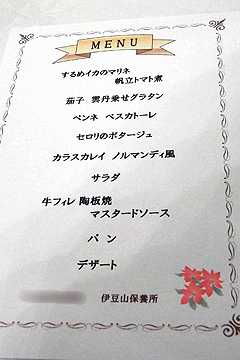 MENU
するめイカのマリネ
帆立トマト煮
茄子 雲丹乗せグラタン
ペンネ ペスカトーレ
セロリのポタージュ
カラスカレイ ノルマンディ風
サラダ
牛フィレ 陶板焼
マスタードソース
パン
デザート
伊豆山保養所